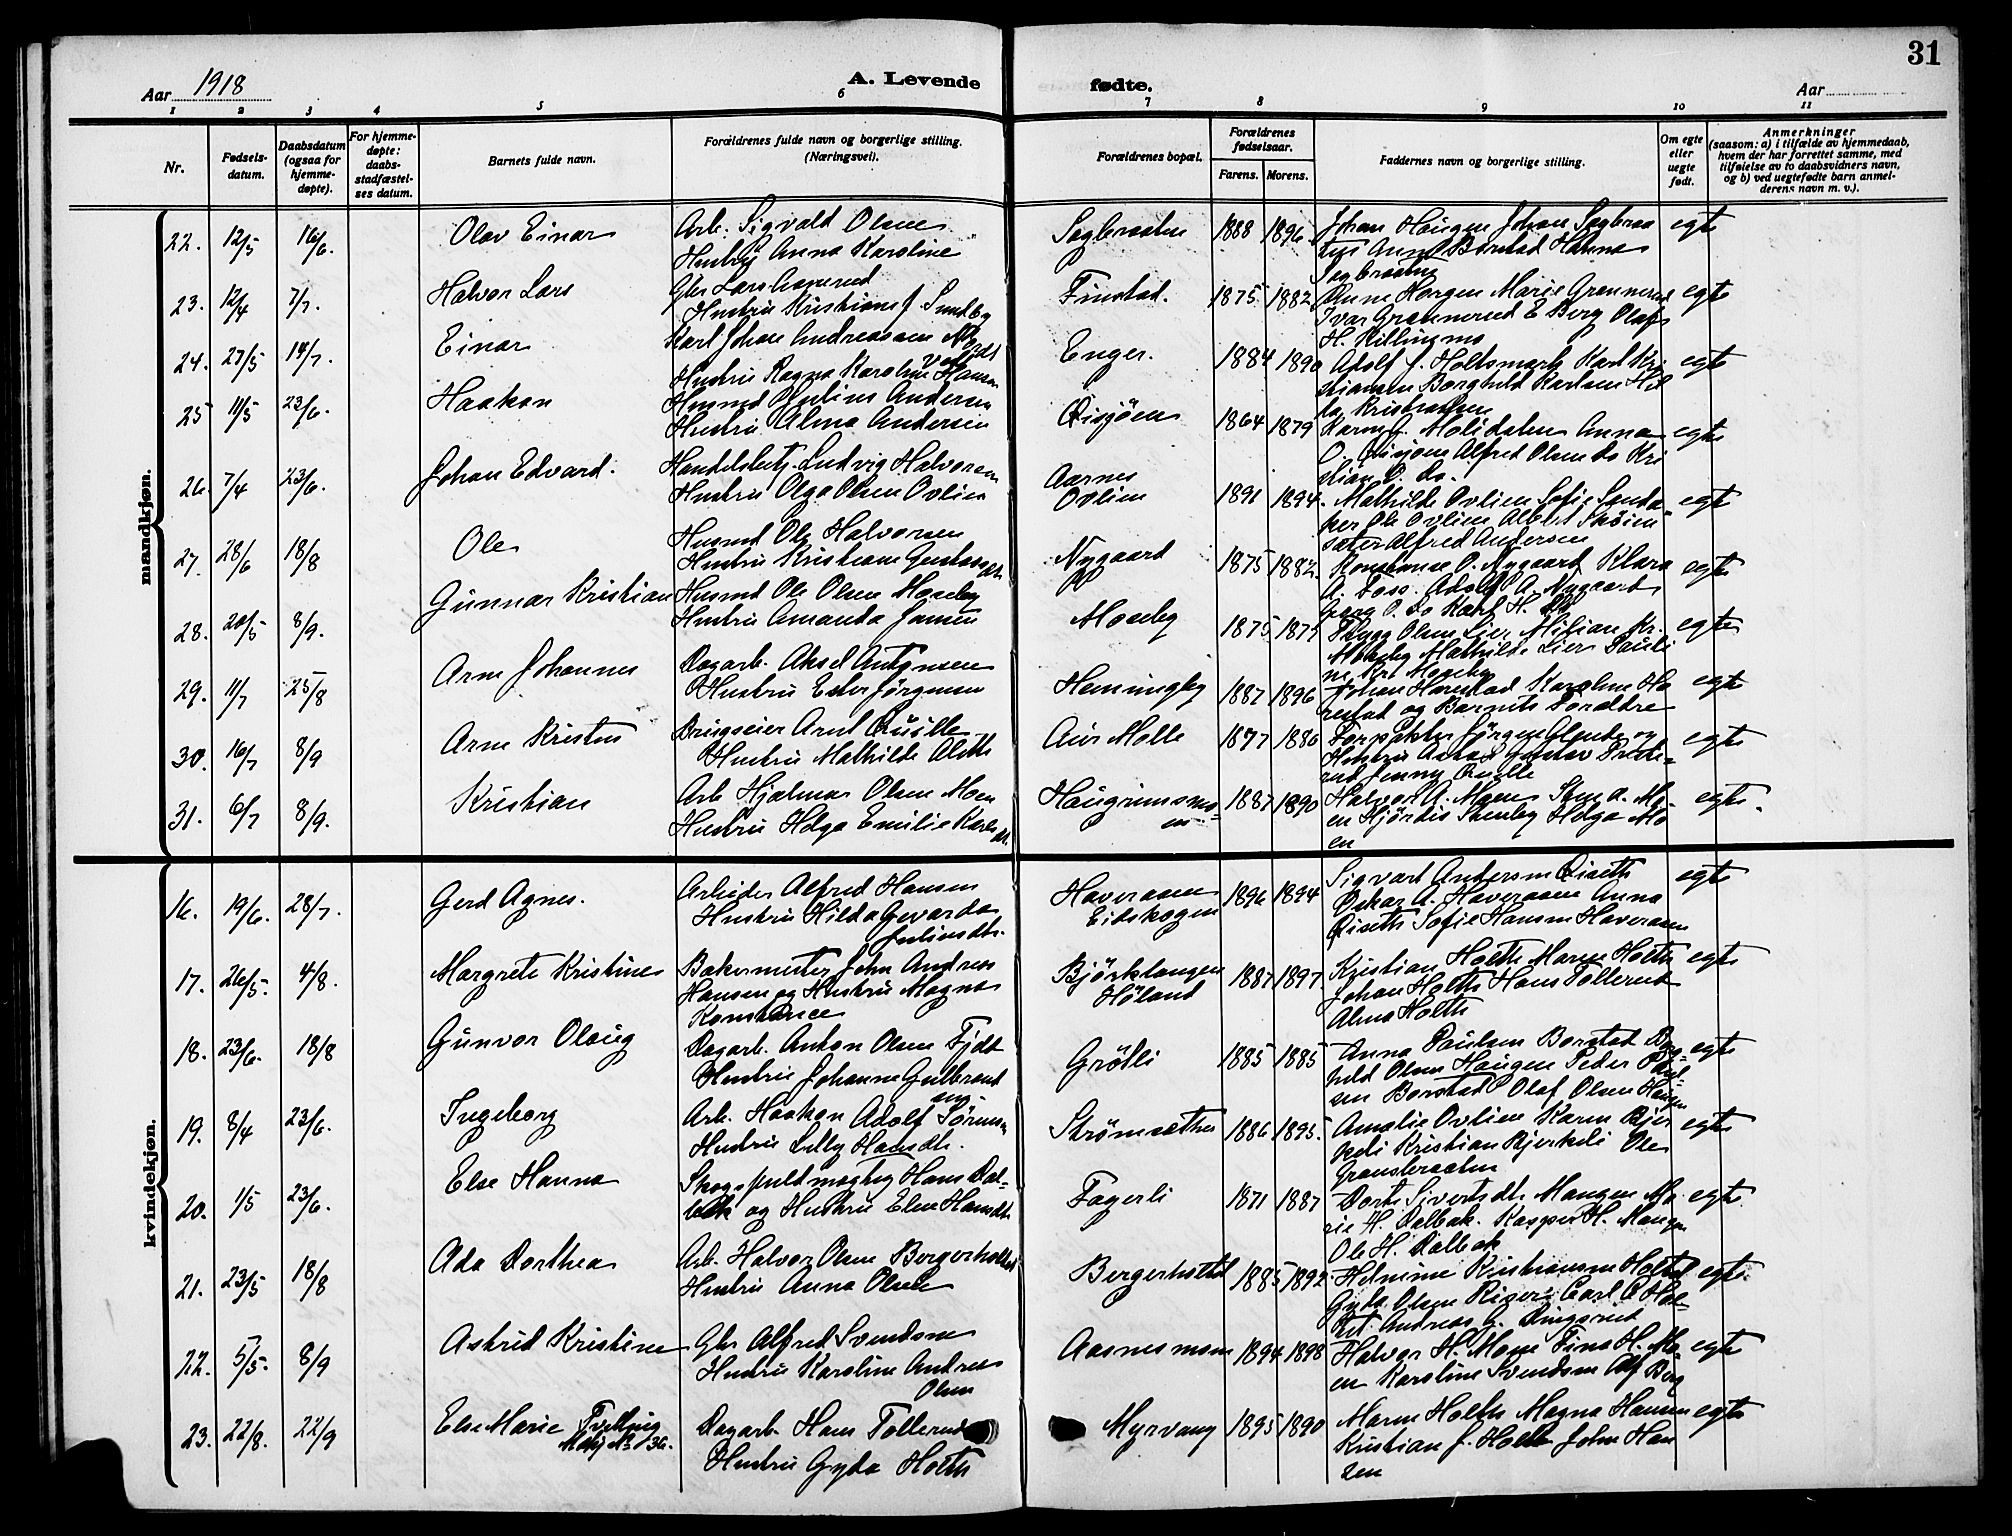 31
Aar 1918
A. Levende fødte.
Aar
1 2 3 4 5 6 7 8 9 10 11
Nr.
Fødsels-datum.
Daabsdatum (ogsaa for hjemme-døpte).
For hjemme-døpte: daabs-stadfæstel-ses datum.
Barnets fulde navn.
Forældrenes fulde navn og borgerlige stilling. (Næringsvei).
Forældrenes bopæl.
Forældrenes fødselsaar.
Farens. Morens.
Faddernes navn og borgerlige stilling.
Om egte eller uegte født.
Anmerkninger
(saasom: a) i tilfælde av hjemmedaab,
hvem der har forrettet samme, med
tilføielse av to daabsvidners navn,
og b) ved uegtefødte barn anmel-
derens navn m. v.).
mandkjøn.
22. 12/5 16/6. Olav Einar
Arb. Sigvald Olsen
Hustru Anna Karoline
Sagbraaten 1888 1896
Johan Haugen Johan Sagbraa
ten Anna Borstad Hanna
Sagbraaten
egte
23. 12/4 7/7. Halvor Lars
Hustru Kristiane J. Smedby
Finstad. 1875 1882
Anne Horgen Marie Grønnerud
Ivar Grønnerud E Berg Olaf
H. Killingmo
egte
24. 27/5 14/7. Einar
Karl Johan Andreassen
Hustru Ragna Karoline Hansen
Enger. 1884 1890
Adolf J. Holtsmark Karl Kri
stiansen Borghild Karlsen Hil
da Kristiansen
egte
25 11/5 23/6. Haakon
Husmd Julius Andersen
Hustru Alma Andersen
Qisjøen 1864 1879
Karen J. Molidalen Anna
O. Qisjøen Alfred Olsen do Kri
stian O. do.
egte
26 7/4 23/6. Johan Edvard.
Handelsbetj. Ludvig Halvorsen
Hustru Olga Olsen Ovlien
Aarnes
Ovlien 1891 1894.
Mathilde Ovlien Sofie Sanda
ker Ole Ovlien Albert Skøien
sæter Alfred Andersen
egte
27. 28/6 18/8 Ole
Husmd Ole Halvorsen
Hustru Kristiane Gustavsdt.
Nygaard 1875 1882.
Konstanse O. Nygaard Klara
A. Foss. Adolf A. Nygaard
Georg O. do Karl H. do
egte
28. 20/5 8/9. Gunnar Kristian
Husmd Ole Olsen Moseby
Hustru Amanda Jansen
Moseby 1875 1875
Trygg Olsen Lier Milian Kr.
Moseby Mathilde Lier Pauli
ne Kr. Moseby
egte
29. 11/7 25/8 Arne Johannes
Dagarb. Aksel Antonsen
Hustru Ester Jørgensen
Hemingby 1887 1896
Johan Harestad Karoline Ha
restad og Barnets Fordldre
egte
30. 16/7 8/9 Arne Kristen
Brugseier Arnt Quille
Hustru Mathilde Aleth
Aur Mølle 1877 1886
Forpakter Jørgen og
Hustru Gustav
Jenny Quille
egte
31. 6/7 8/9. Kristian
Arb Hjalmar Olsen Moen
Hustru Helga Emilie Karlsdt.
Haugrimsmo
en 1887 1890
Halvor A. Moen Sten a. Mo
en Hjørdis Stenby Helga Mo
en
egte.
kvindekjøn.
16. 19/6. 28/7. Gerd Agnes.
Arbeider Alfred Hansen
Hustru Hilda Gevarda
Juliusdt.
Haveraaen
Eidskogen 1896 1894
Sigvart Andersen Qiseth
Oskar A. Haveraaen Anna
Qiseth Sofie Hansen Haveraaen
egte
17. 26/5. 4/8. Margrete Kristine
Bakermester John Andreas
Hansen og Hustru Magna
Konstance
Bjørklangen
Høland 1887 1897
Kristian Holth Maren Holth
Johan Holth Hans Tollerud
Alma Holth
egte
18. 23/6. 18/8 Gunvor Olaug
Dagarb. Anton Olsen Fjdt
Hustru Johanne Gulbrand
sen
Grøtli 1885 1885
Anna Paulsen Borstad Borg-
hild Olsen Haugen Peder Paul-
sen Borstad Olaf Olsen Haugen
egte
19. 8/4 23/6. Ingeborg
Arb. Haakon Adolf Sørensen
Hustru Lilly Hansdt.
Strømsæther 1886 1895.
Amalie Ovlien Karen Bjer
keli Kristian Bjerkeli Ole
Gransberaaten
egte
20. 1/5 23/6. Else Hanna
Skogsfuldmægtig Hans Dal-
bak og Hustru Elen Hansdt.
Fagerli 1871 1887
Dorte Sivertsdt. Mangen Ma
rie H. Dalbak. Kasper H. Mangen
Ole H. Dalbak
egte
21. 23/5 18/8 Ada Dorthea
Arb. Halvor Olsen Bergerholtet
Hustru Anna Olsen
Bergerholtet 1885 1892.
Helmine Kristiansen Holtet
Gyda Olsen Riser Carl C Hol-
tet. Andreas G. Ringsrud
egte.
22. 5/5. 8/9 Astrid Kristine
Gbr Alfred Svendsen
Hustru Karoline Andrea
Olsen
Aasnesmoen 1894 1898
Halvor H. Moen Tina H. Mo-
en Karoline Svendsen Alf Berg
egte
23. 22/8. 22/9 Else Marie Tvilling
36.
Dagarb. Hans Tollerud
Hustru Gyda Holth
Myrvang 1895 1890
Maren Holth Magna Hansen
Kristian J. Holth John Han
sen
egte